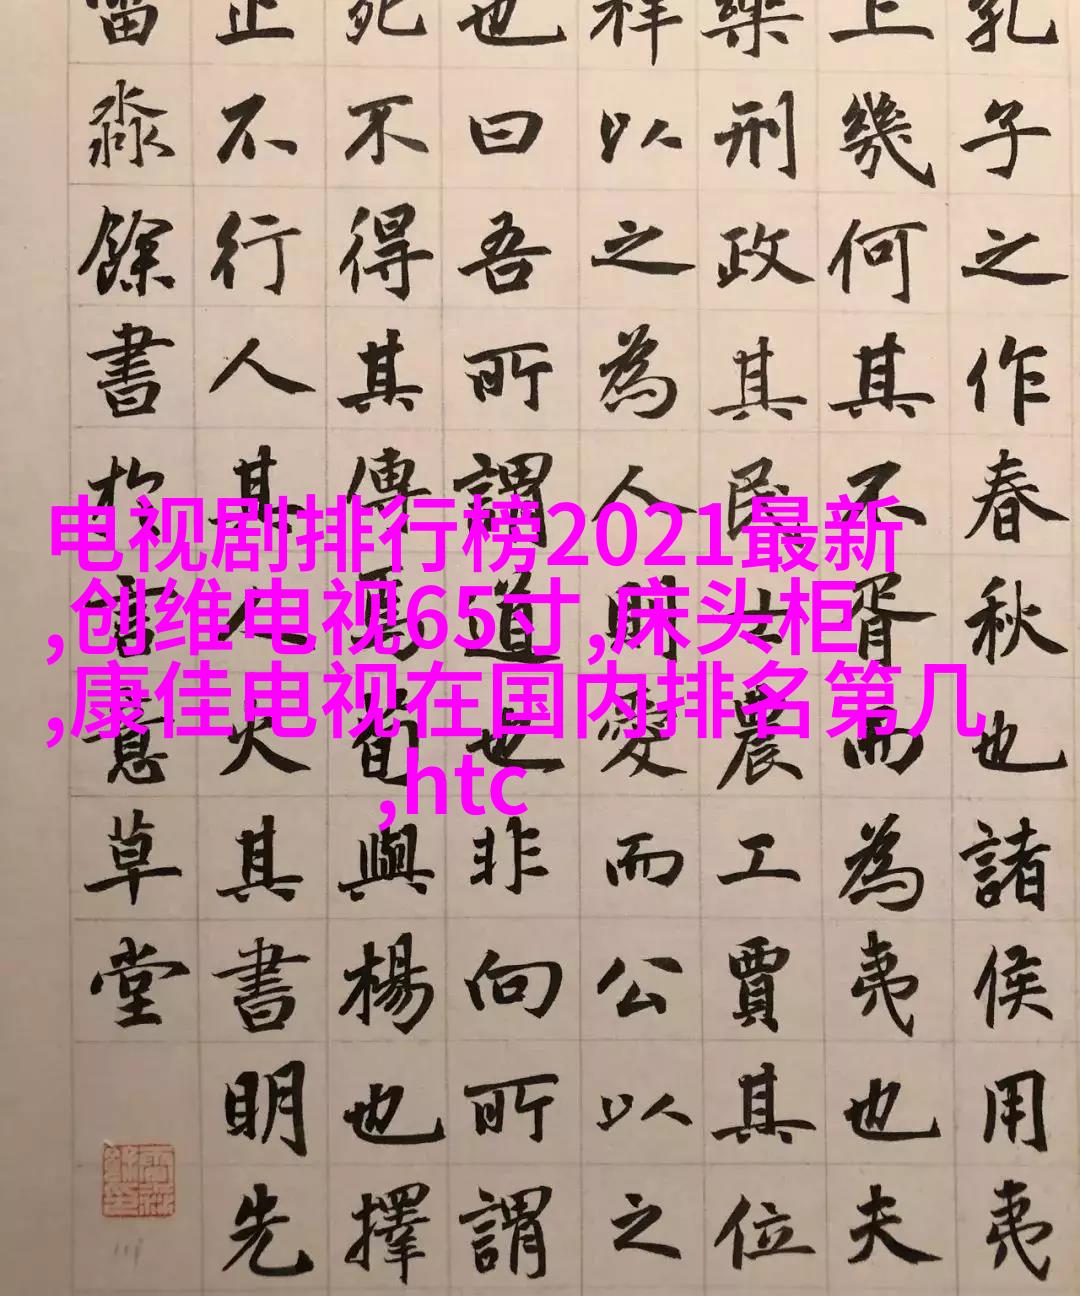 电视剧排行榜2021最新
,创维电视65寸,床头柜
,康佳电视在国内排名第几
,htc
孔子之作春秋也諸侯用夷
上幾何其不胥而為夷也夫
樂刑政其民士農工賈其位
祥以之為人則愛而公以之
也曰吾所謂道也非向所謂
死不得其傳焉荀與楊也擇
止不行人其人火其書明先
淼餘書於雪意草堂